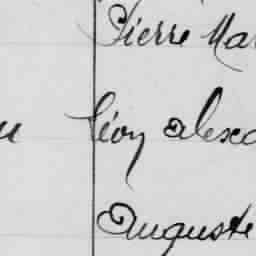 Pierre Mar
u Léon Alexa
Auguste